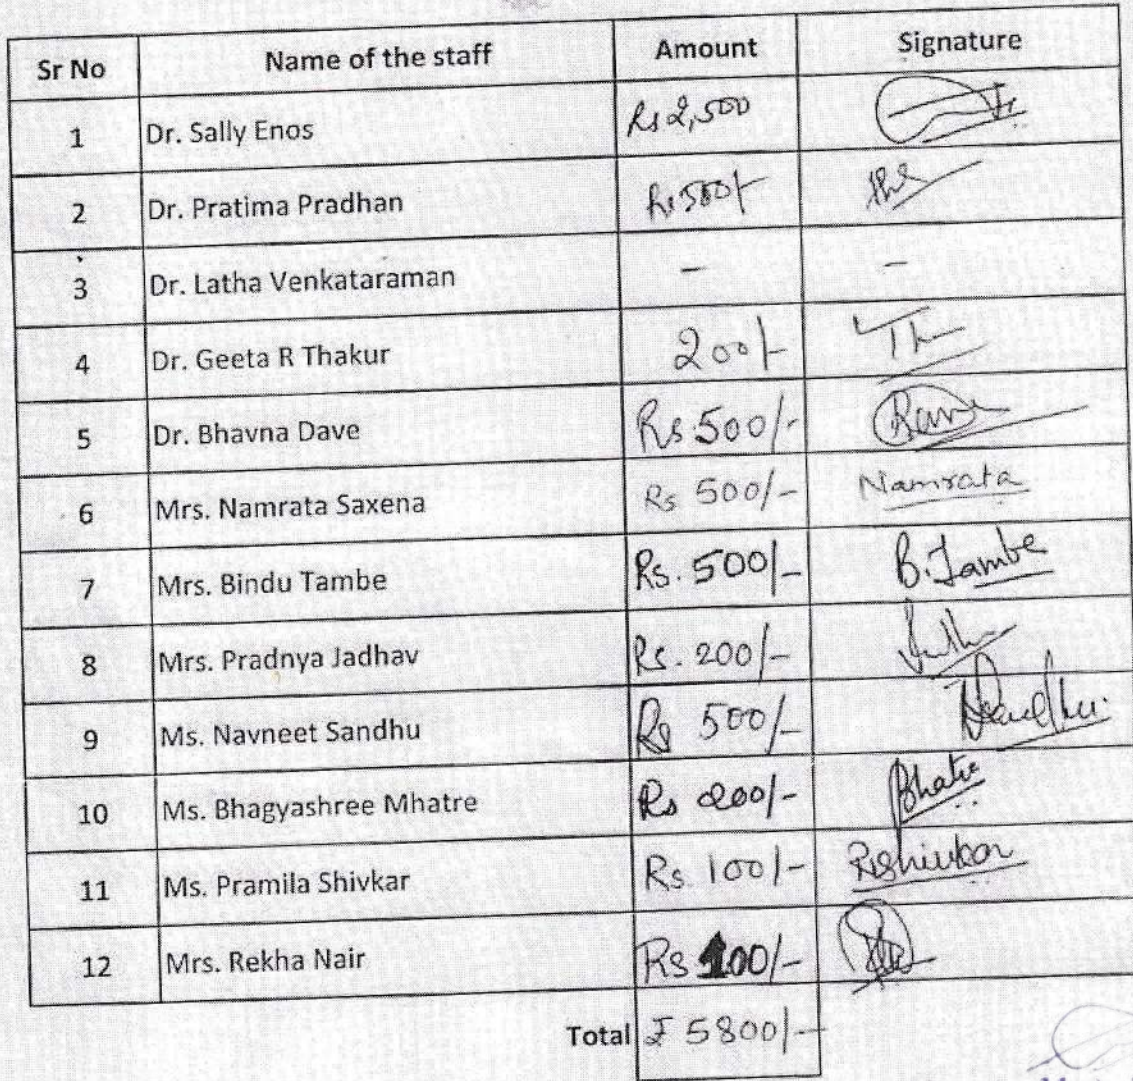 Sr No Name of the staff Amount Signature
1 Dr. Sally Enos Rs 2,500
2 Dr. Pratima Pradhan Rs 500/-
3 Dr. Latha Venkataraman - -
4 Dr. Geeta R Thakur 200/-
5 Dr. Bhavna Dave Rs 500/-
6 Mrs. Namrata Saxena Rs 500/- Namrata
7 Mrs. Bindu Tambe Rs. 500/- B. Tambe
8 Mrs. Pradnya Jadhav Rs. 200/-
9 Ms. Navneet Sandhu Rs 500/-
10 Ms. Bhagyashree Mhatre Rs 200/-
11 Ms. Pramila Shivkar Rs 100/- Rshivkar
12 Mrs. Rekha Nair Rs 100/-
Total ₹ 5800/-